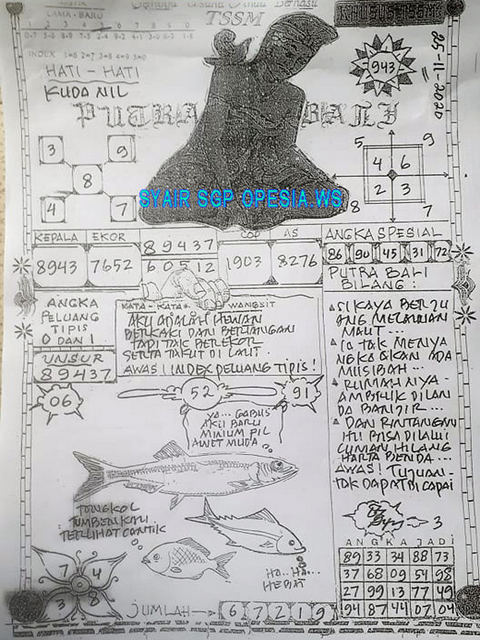 LAMA - BARU
TSSM
KHUSUS TSSM
1 2 3 4 5 6 7 8 9 0
INDEX
HATI - HATI
KUDA NIL
943
25-11-2020
PUTRA BALI
3 9
8
4 7
5 9
4 6
2 3
8 7
SYAIR SGP OPESIA.WS
KEPALA EKOR
8943 7652
89437
60512
COP AS
1903 8276
ANGKA SPESIAL
86 90 45 31 72
PUTRA BALI
BILANG :
ANGKA
PELUANG
TIPIS
0 DAN 1
UNSUR
89437
KATA - KATA WANGSIT
AKU ADALAH HEWAN
BERKAKI DAN BERTANGAN
TAPI TAK BEREKOR
SERTA TAKUT DI LAUT
AWAS ! INDEX PELUANG TIPIS !
SI KAYA BERJU
ANG MELAWAN
MAUT ...
IA TAK MENYA
NGKA AKAN ADA
MUSIBAH ...
RUMAHNYA -
AMBRUK DILAN
DA BANJIR ...
DAN RINTANGAN
ITU BISA DILALUI
CUMAN HILANG
HARTA BENDA ...
AWAS ! TUJUAN -
TAK DAPAT DI CAPAI
06
52
91
YA... GABUS
AKU BARU
MINUM PIL
AWET MUDA
TONGKOL
TUMBEN KAU
TERLIHAT CANTIK
HA.. HA...
HEBAT
3
7 4
3 8
JUMLAH → 6 7 2 1 9
ANGKA JADI
89 33 34 88 73
37 68 09 54 98
27 99 13 77 49
94 87 44 07 04